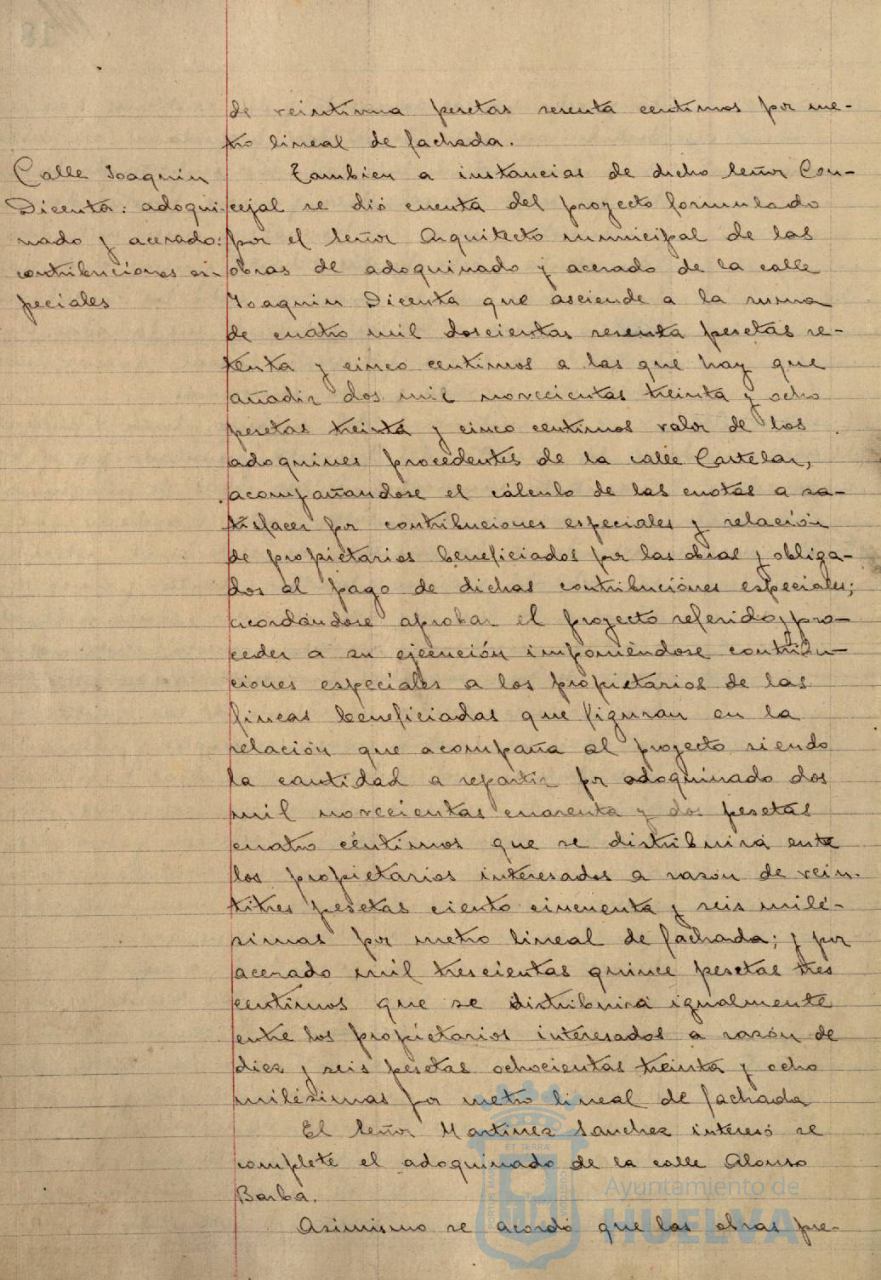 de veintiuna pesetas sesenta centimos por me-
tro lineal de fachada.
Calle Joaquin
Dicenta: adoqui-
nado y acerado:
contribuciones es-
peciales
Tambien a instancias de dicho señor Con-
cejal se dió cuenta del proyecto formulado
por el señor Arquitecto municipal de las
obras de adoquinado y acerado de la calle
Joaquin Dicenta que asciende a la suma
de cuatro mil doscientas sesenta pesetas se-
tenta y cinco centimos a las que hay que
añadir dos mil novecientas treinta y ocho
pesetas treinta y cinco centimos valor de los
adoquines procedentes de la calle Castelar,
acompañandose el cálculo de las cuotas a sa-
tisfacer por contribuciones especiales y relación
de propietarios beneficiados por las obras y obliga-
dos al pago de dichas contribuciones especiales;
acordándose aprobar el proyecto referido, pro-
ceder a su ejecución imponiéndose contribu-
ciones especiales a los propietarios de las
fincas beneficiadas que figuran en la
relación que acompaña al proyecto siendo
la cantidad a repartir por adoquinado dos
mil novecientas cuarenta y dos pesetas
cuatro céntimos que se distribuirá ente
los propietarios interesados a razón de vein-
titres pesetas ciento cincuenta y seis milé-
simas por metro lineal de fachada; y por
acerado mil trescientas quince pesetas tres
centimos que se distribuirá igualmente
entre los propietarios interesados a razón de
diez y seis pesetas ochocientas treinta y ocho
milésimas por metro lineal de fachada
El señor Martinez Sanchez interesó se
complete el adoquinado de la calle Alonso
Barba.
Asimismo se acordó que las obras pre-
Ayuntamiento de
HUELVA